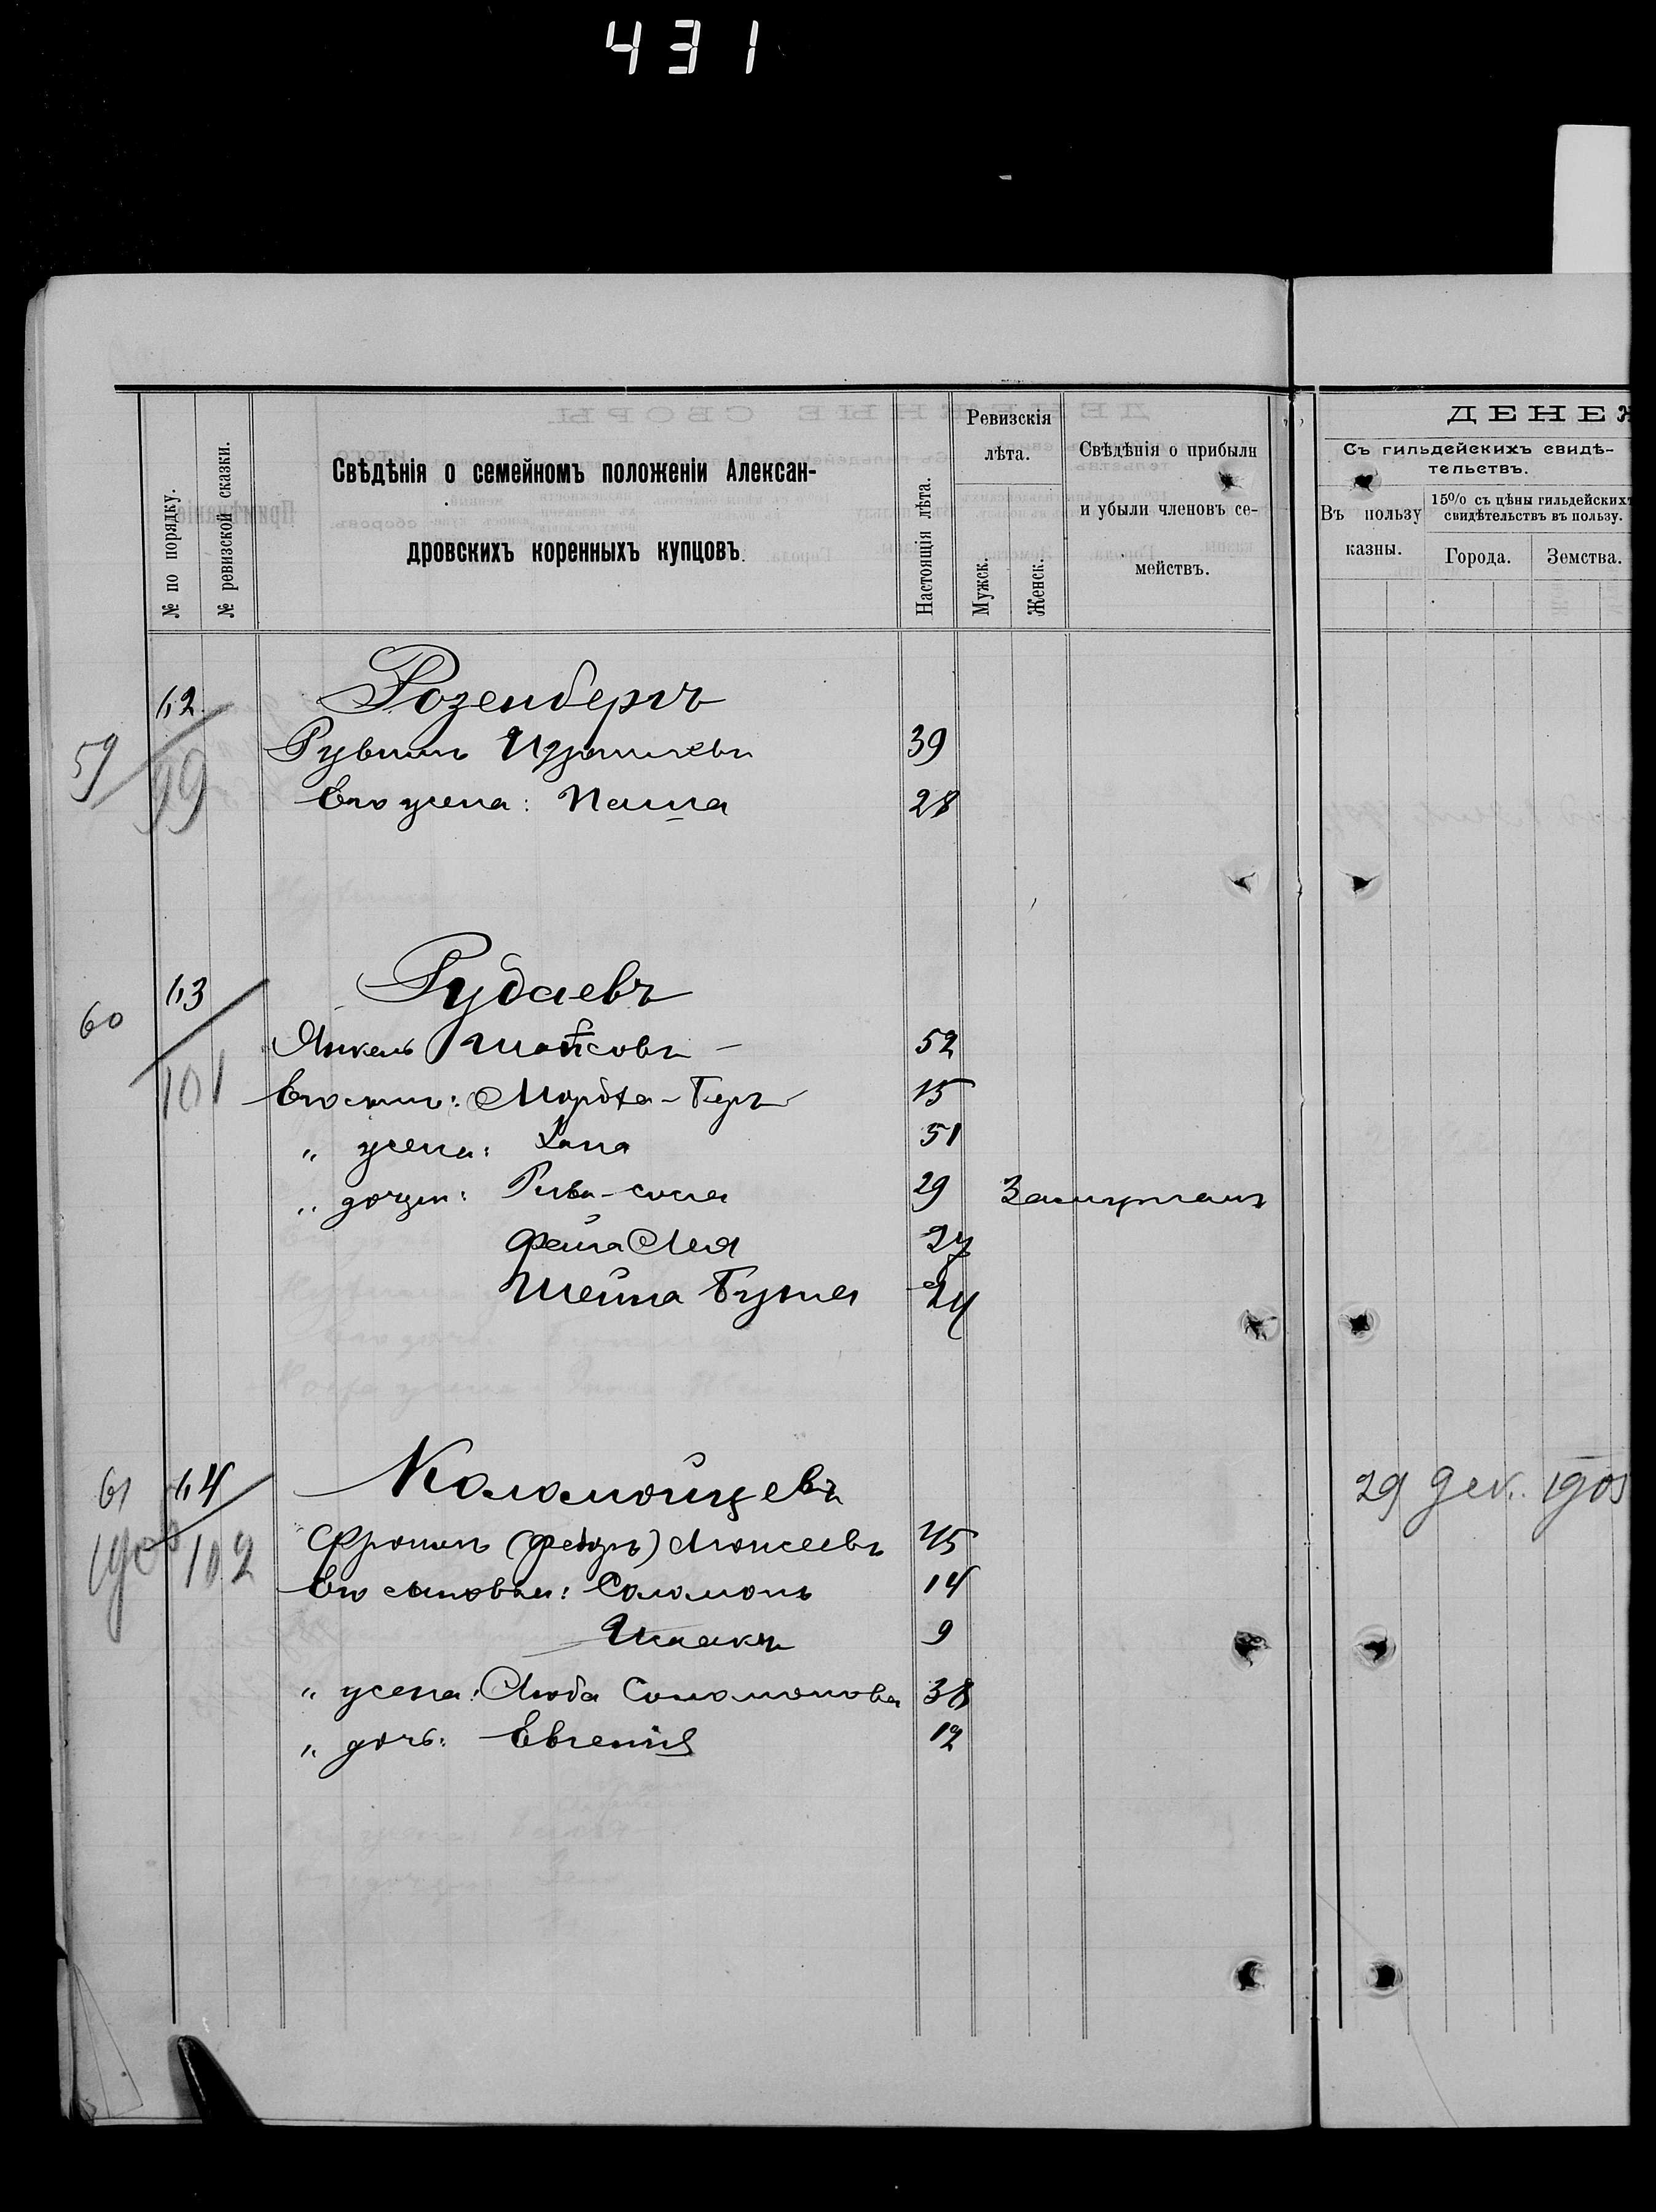 431
№ по порядку.
№ ревизской сказки.
Свѣдѣнія о семейномъ положеніи Алексан-
дровскихъ коренныхъ купцовъ.
Настоящія лѣта.
Ревизскія
лѣта.
Мужск.
Женск.
Свѣдѣнія о прибыли
и убыли членовъ се-
мействъ.
ДЕНЕЖ
Съ гильдейскихъ свидѣ-
тельствъ.
Въ пользу
казны.
15% съ цѣны гильдейскихъ
свидѣтельствъ въ пользу.
Города.
Земства.
62 Розенбергъ
59 99
Рувинъ 39
Его жена: Песша 28
63 Рудаевъ
60 101
Янкель 52
Его сынъ: Мордха-Беръ 15
" жена: Хана 51
" дочери: Рива-Сося 29 Замужемъ
Фейга Лея 27
Шейна Бузя 24
61 64 Коломойцевъ 29 дек. 1903
1900 102
Фроимъ (Федоръ) Моисеевъ 45
Его сыновья: Соломонъ 14
Исаакъ 9
" жена: Люба Соломонова 38
" дочь: Евгенія 12